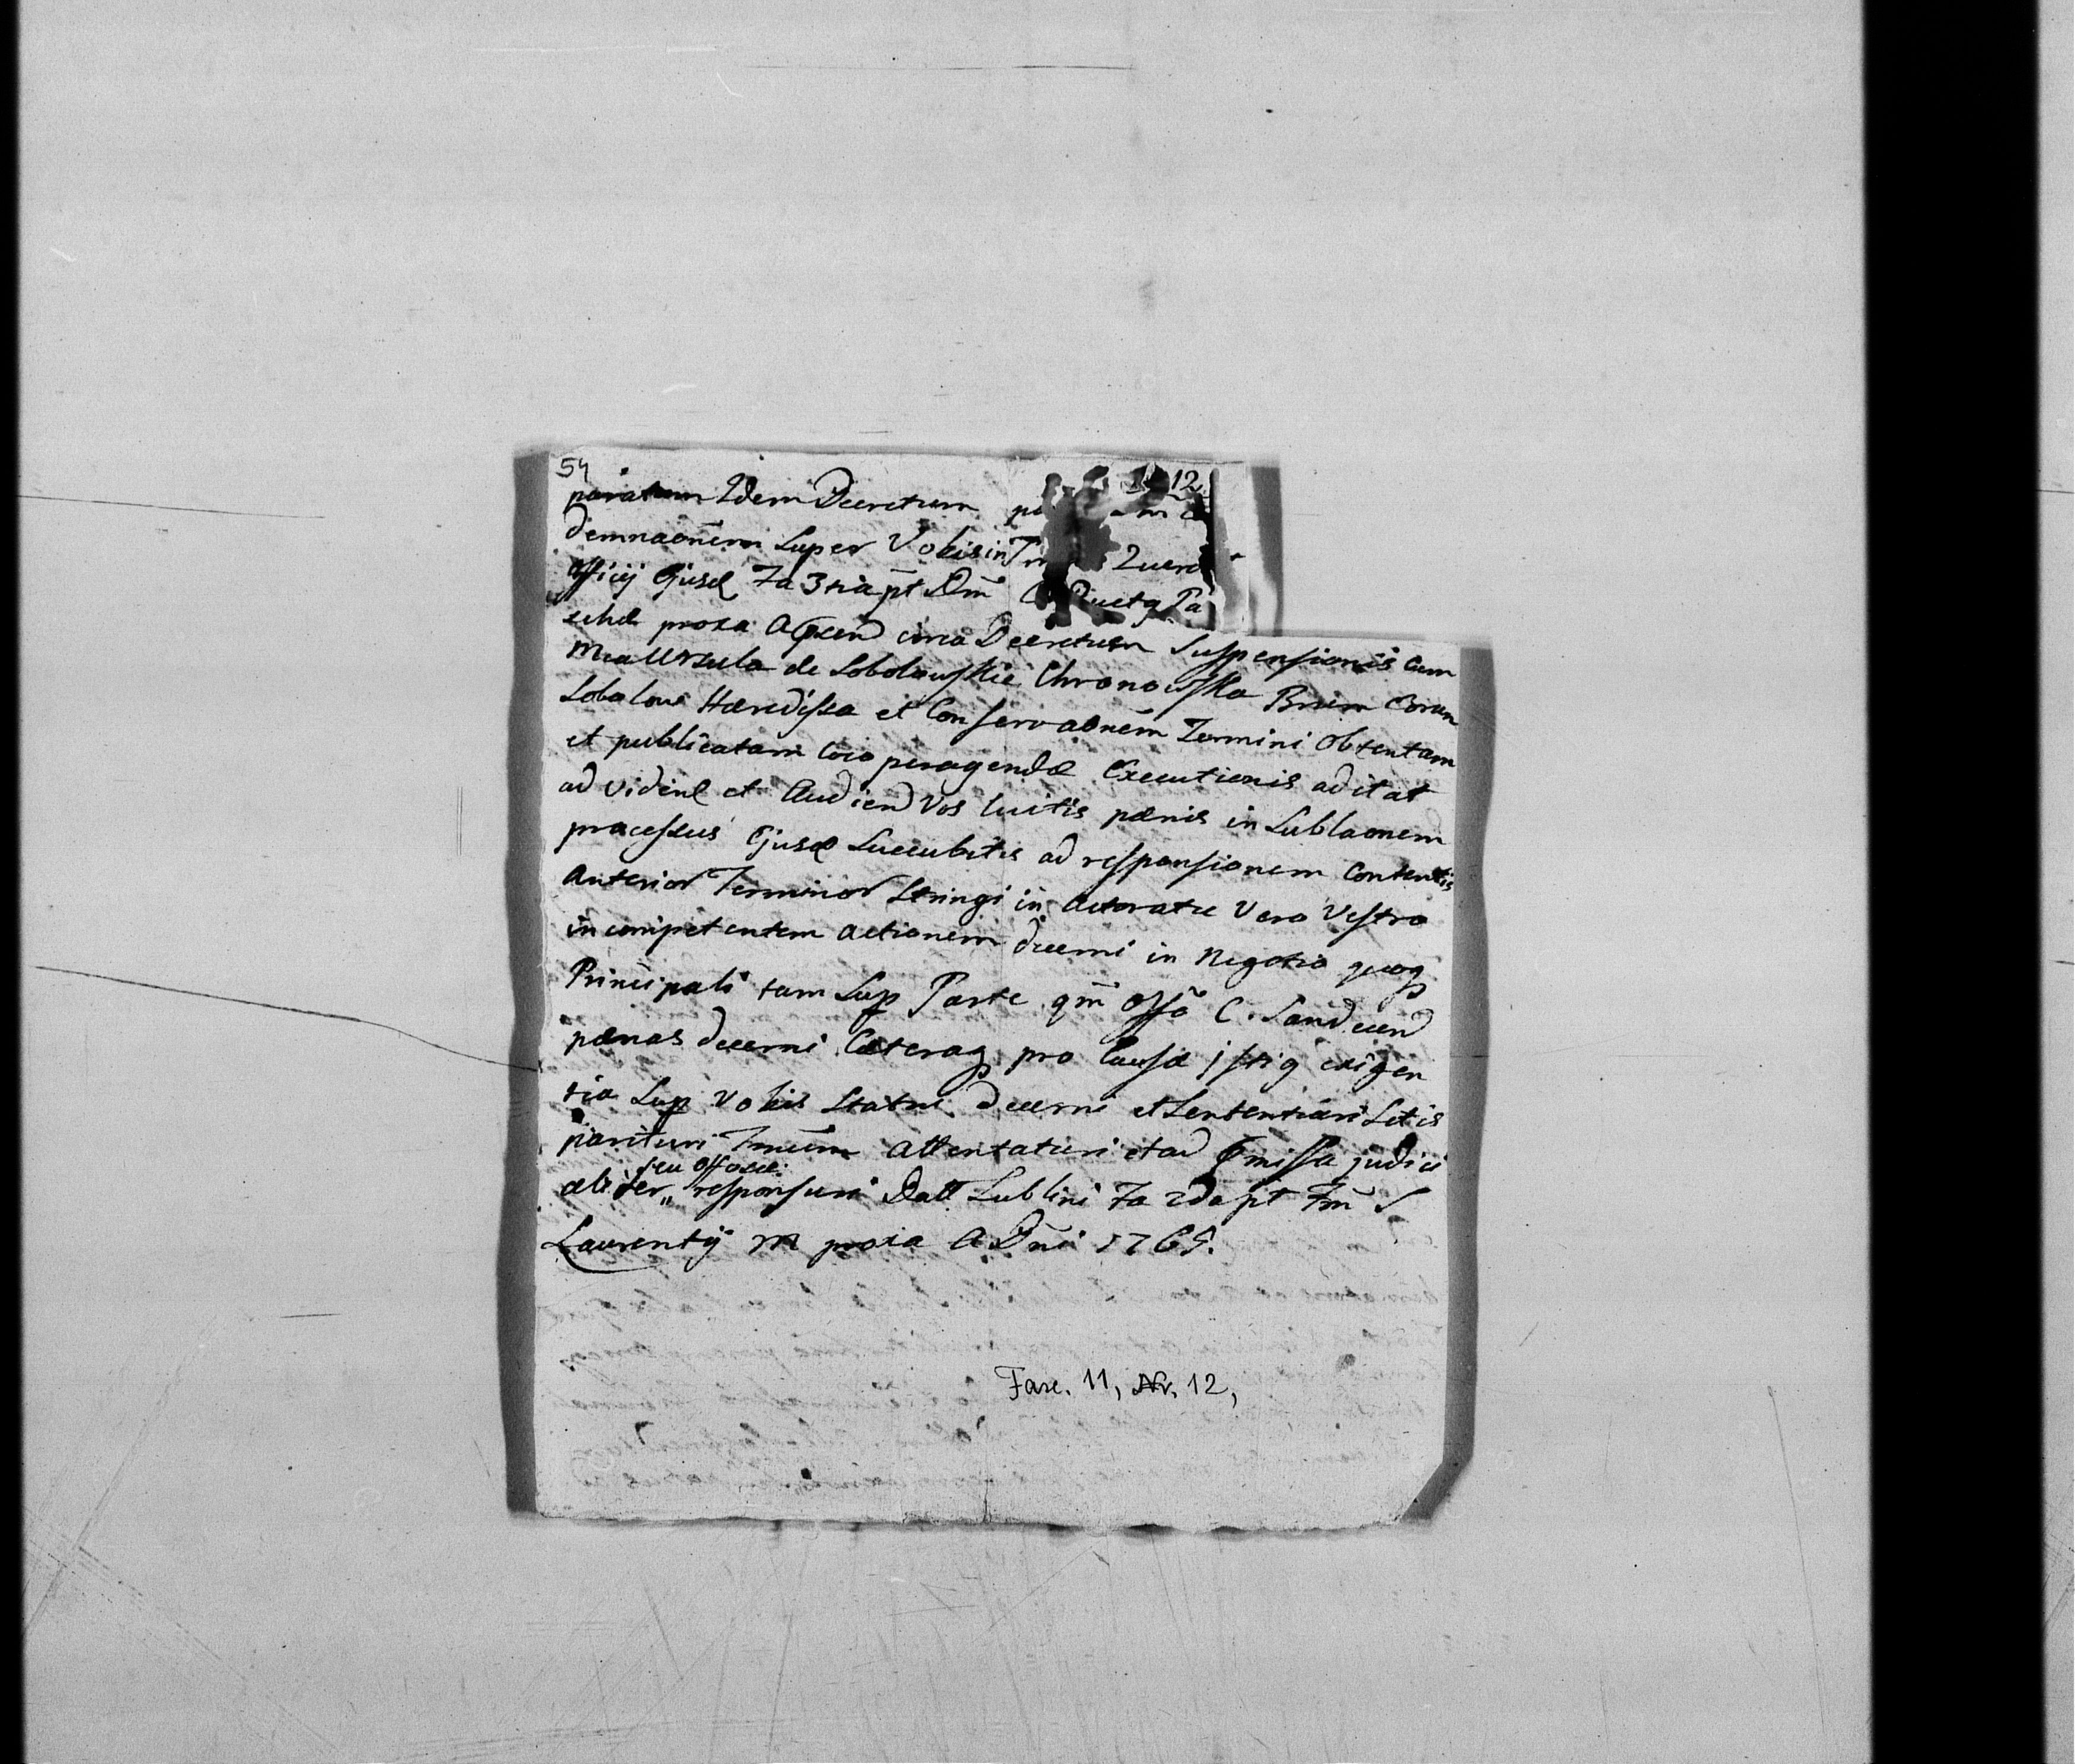 54
12
paratum Idem Decretum
demnaonem super Vobis in
Officij Ejusd Fa 3tia pt Dm Pa
schæ proxa Apxend circa Decretum Suspensionis cum
Mca Ursula de Sobolewskie Chronowska Bnrm Eorum
Sobolow Hæredissa et Conservaonem Termini Obtentam
et publicatam loco peragendæ Executionis ad itat
ad Videnl et Audiend Vos luitis pænis in Sublaonem
processus Ejusd Succubitis ad responsionem Contentis
Anterior Terminor Stringi in Actoratu Vero Vestro
incompetentem Actionem decerni in Negotio quoq
Principali tam Sup Parte qm Offo C. Sandecen
pænas decerni Cæteraq pro Causæ istiq exigen
tia Sup Vobis Statui decerni et Sententiari Sitis
parituri Tmum Attentaturi et ad præmissa judici
seu Offose
alit er responsuri Datt Lublini Fa 2da pt Fm S
Laurentij M proxa A Dni 1765.
Fasc. 11, Nr. 12,